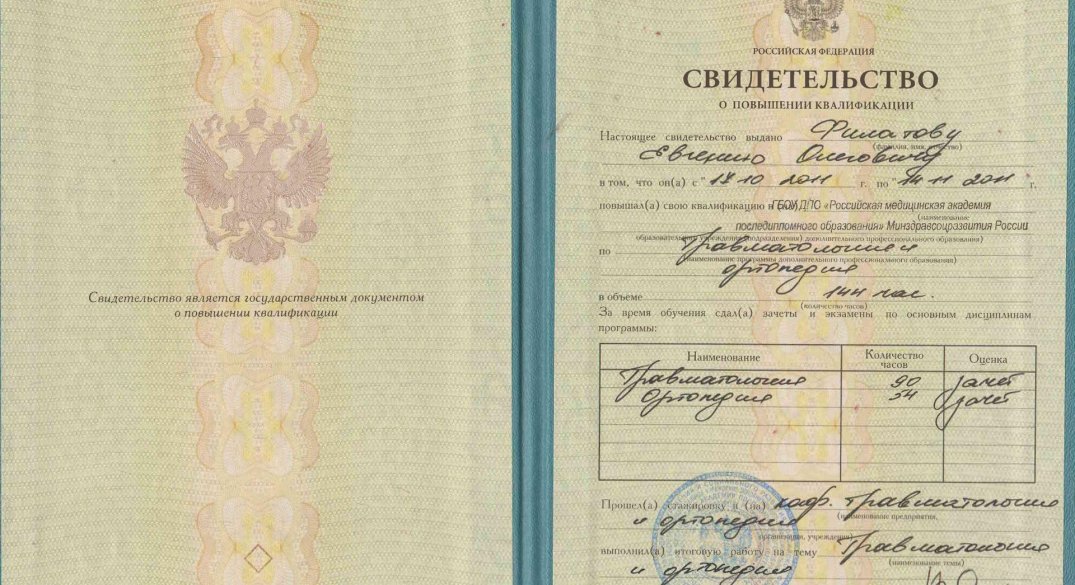 Свидетельство является государственным документом
о повышении квалификации
РОССИЙСКАЯ ФЕДЕРАЦИЯ
СВИДЕТЕЛЬСТВО
О ПОВЫШЕНИИ КВАЛИФИКАЦИИ
Настоящее свидетельство выдано Филатову
(фамилия, имя, отчество)
Евгению Олеговичу
в том, что он(а) с "17 10 2011 г. по "14 11 2011 г.
повышал(а) свою квалификацию в (на) ГБОУ ДПО «Российская медицинская академия
(наименование
последипломного образования» Минздравсоцразвития России
образовательного учреждения (подразделения) дополнительного профессионального образования)
по Травматология и
(наименование программы дополнительного профессионального образования)
ортопедия
в объеме 144 час.
(количество часов)
За время обучения сдал(а) зачеты и экзамены по основным дисциплинам
программы:
Наименование Количество часов Оценка
Травматология 90 зачет
Ортопедия 54 зачет
Прошел(а) стажировку в (на) каф. травматологии
(наименование предприятия,
и ортопедии
организации, учреждения)
выполнил(а) итоговую работу на тему Травматология
(наименование темы)
и ортопедия